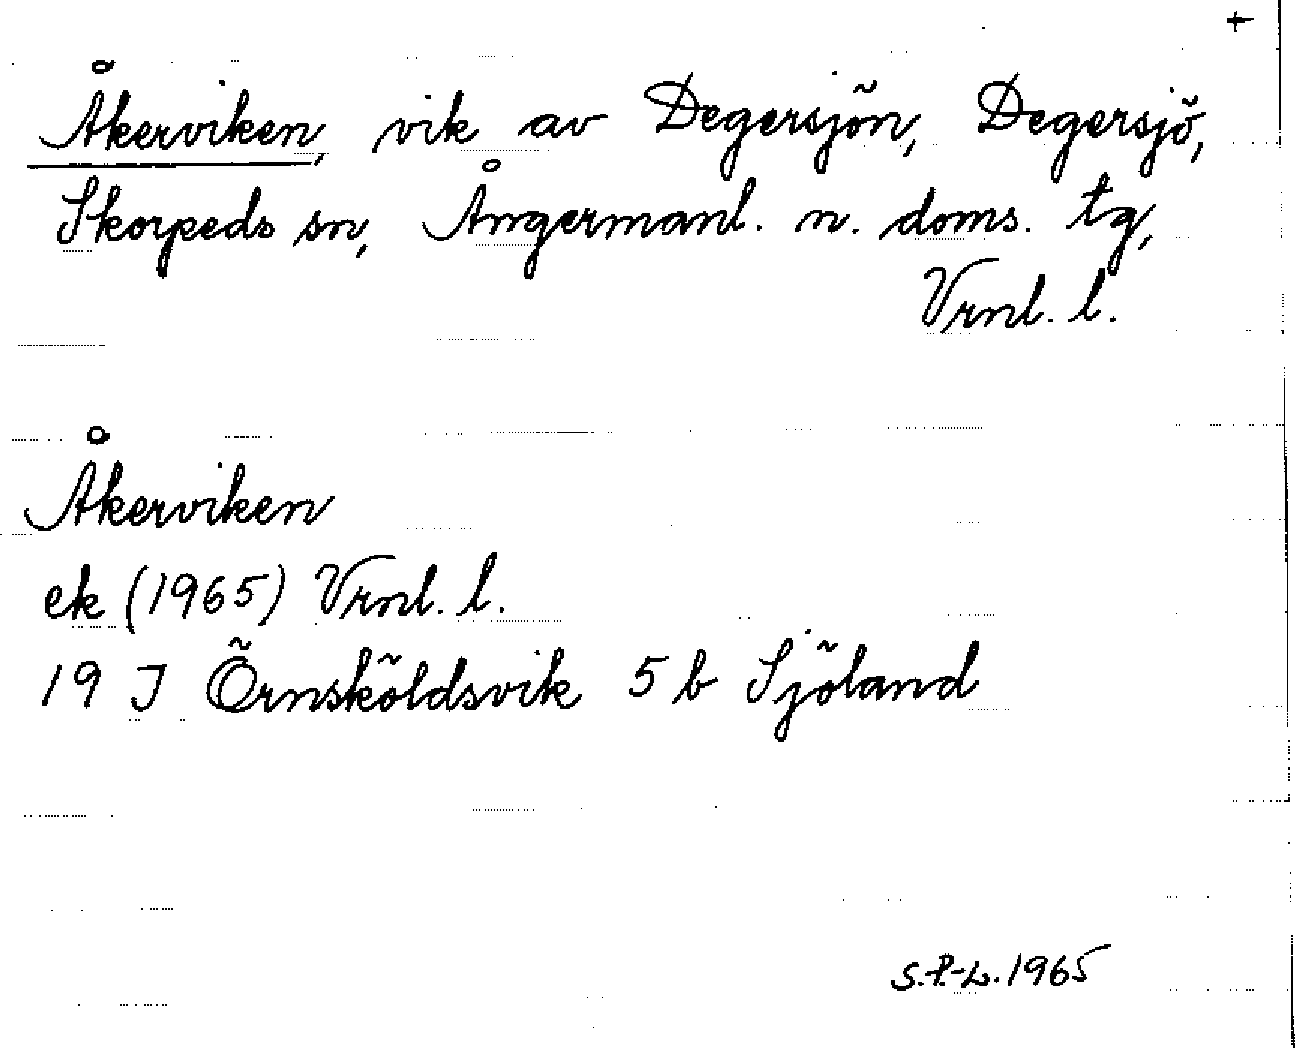 +
Åkerviken, vik av Degersjön, Degersjö,
Skorpeds sn, Ångermanl. n. doms. tg,
Vrnl. l.
Åkerviken
ek (1965) Vrnl. l.
19 J Örnsköldsvik 5 b Sjöland
S.P-L. 1965